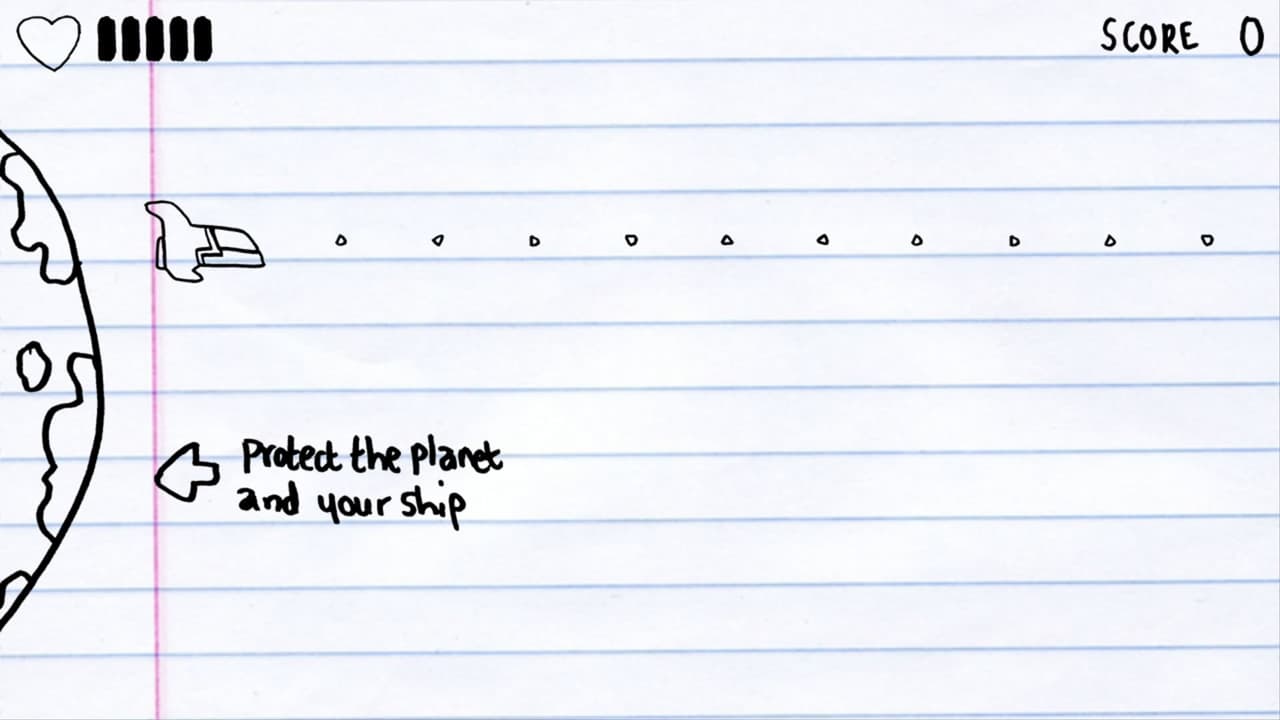 SCORE 0
Protect the planet
and your ship